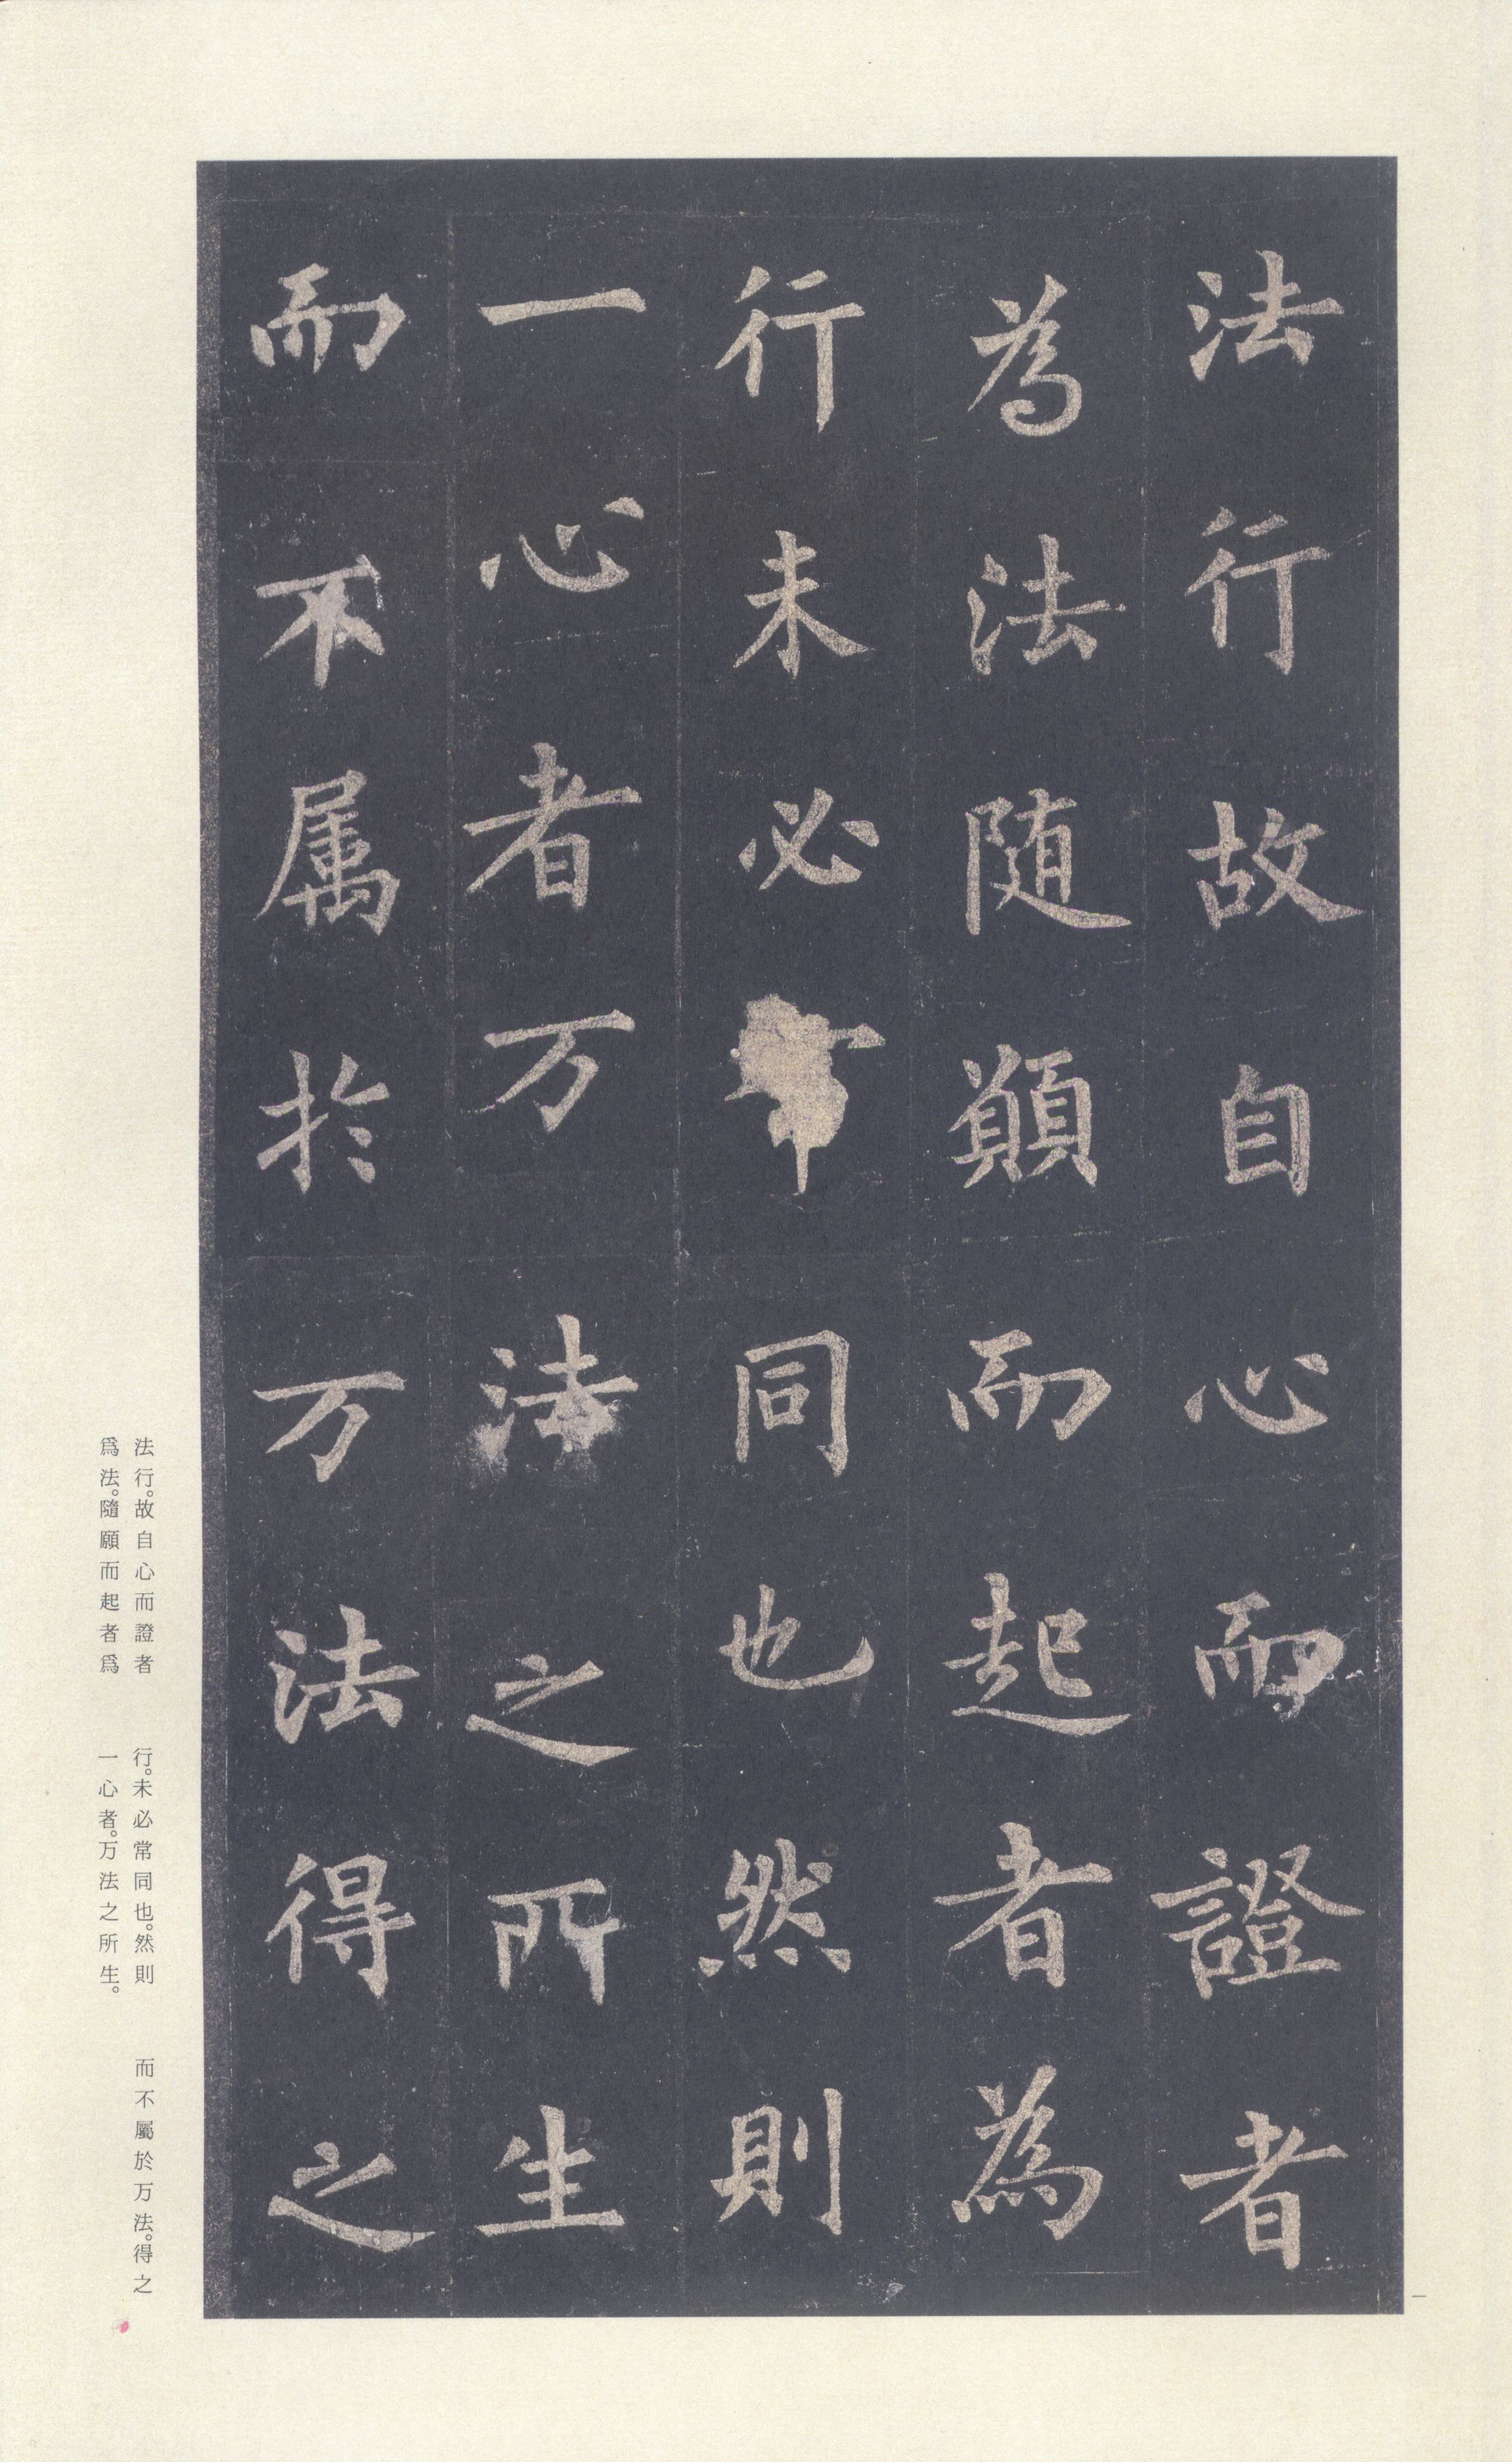 法行故自心而證者
為法随願而起者為
行未必同也然則
一心者万法之所生
而不属於万法得之
法行。故自心而證者
爲法。隨願而起者爲
行。未必常同也。然則
一心者。万法之所生。
而不屬於万法。得之
一